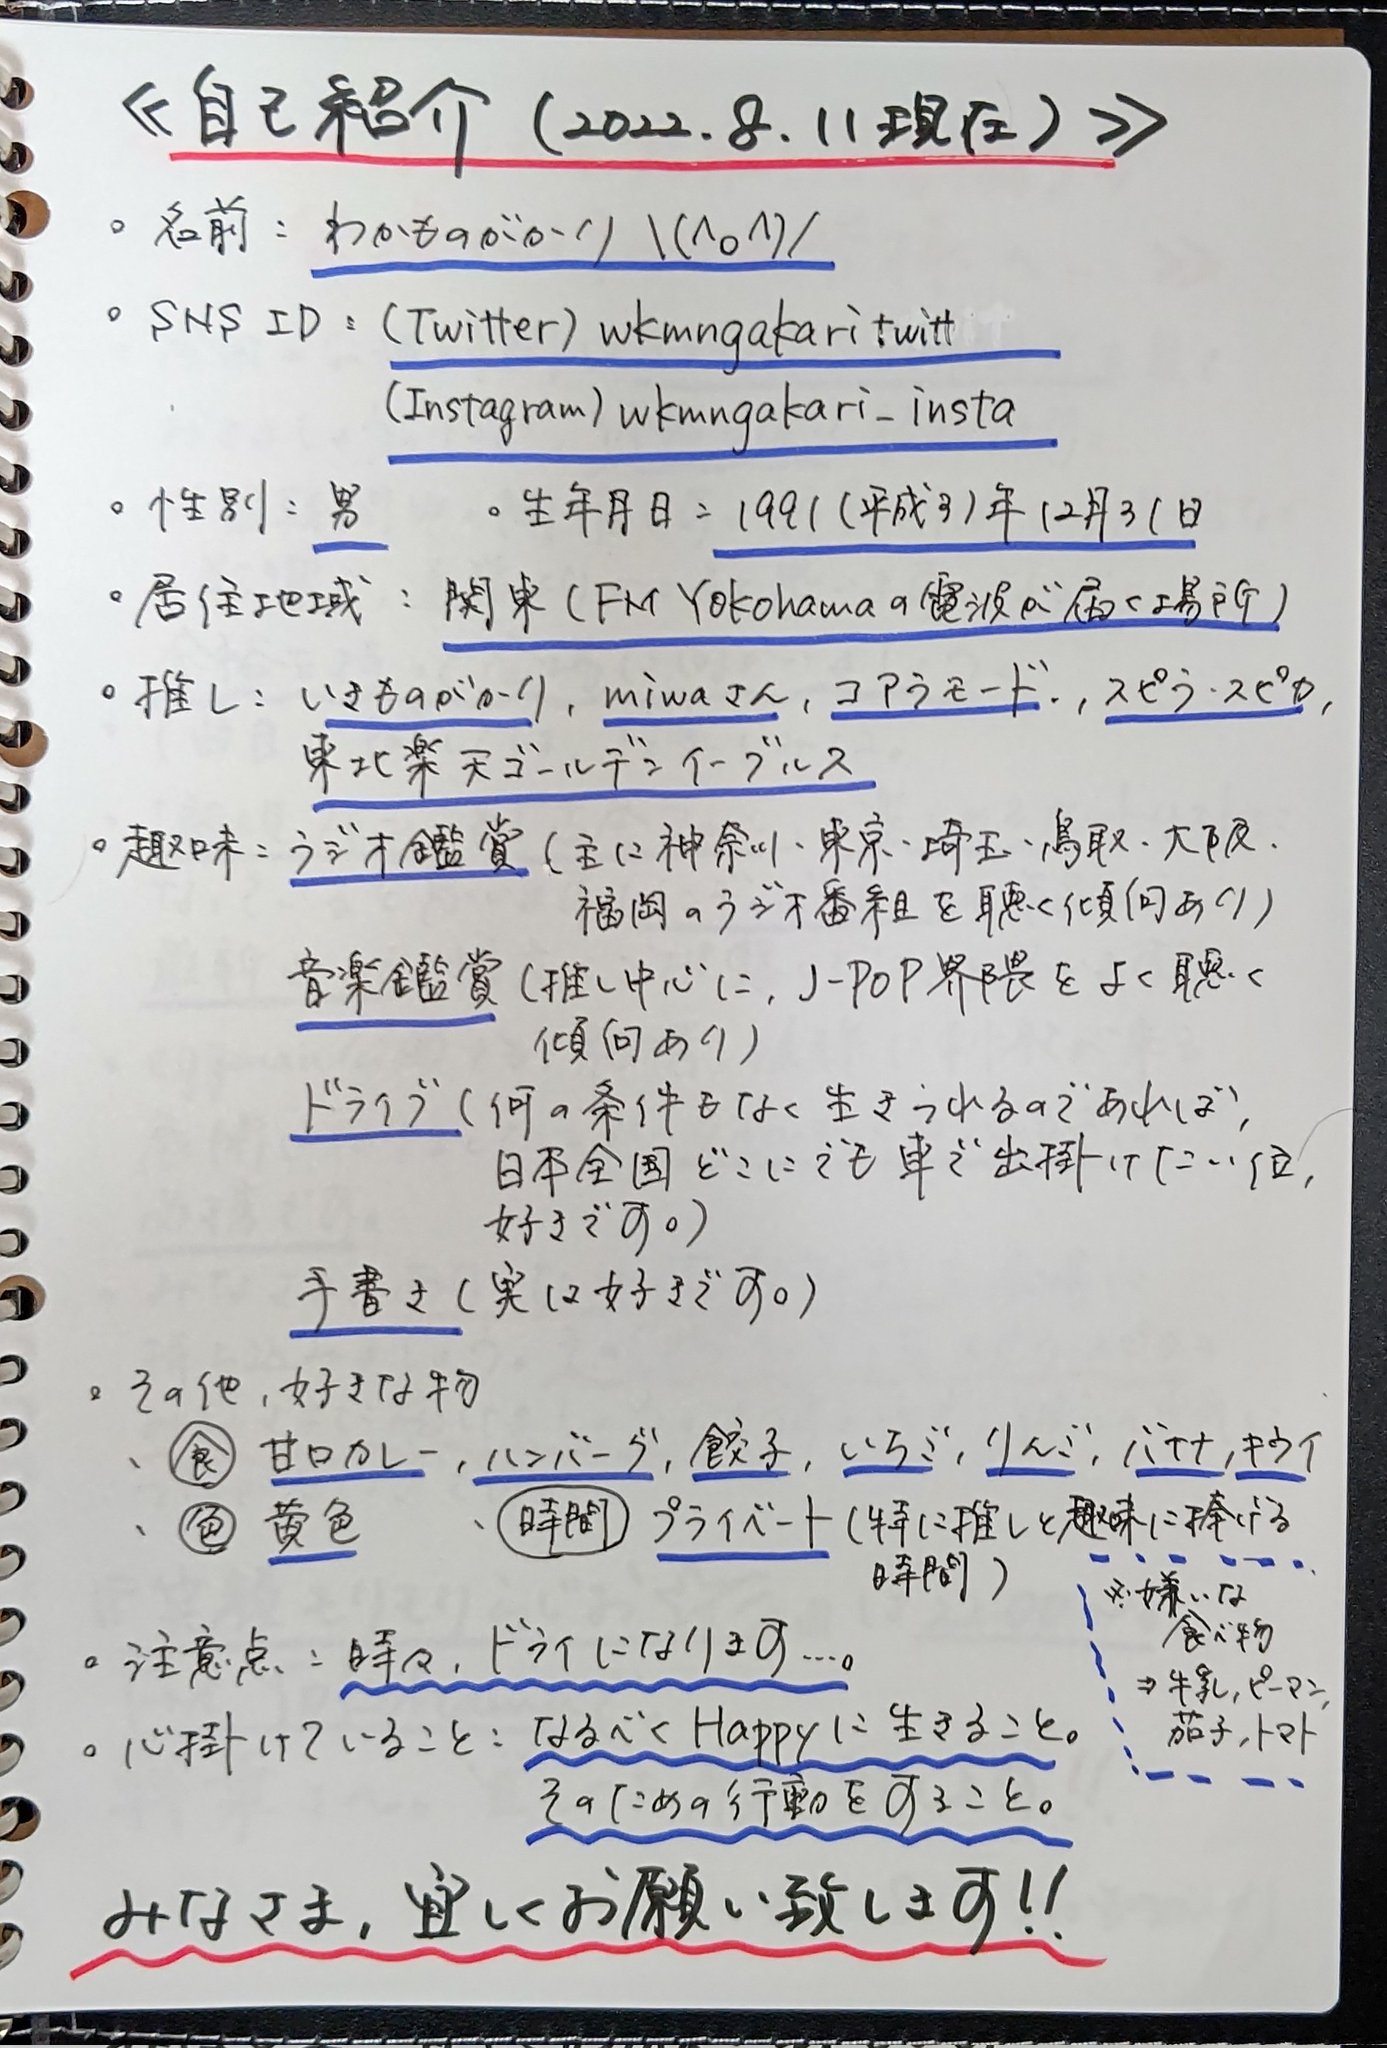 ≪自己紹介（2022.8.11現在）≫
。名前：わかものがかり \(^o^)/
。SNS ID：(Twitter) wkmngakaritwitt
(Instagram) wkmngakari_insta
。性別：男 。生年月日：1991(平成3)年12月31日
。居住地域：関東（FM Yokohamaの電波が届く場所）
。推し：いきものがかり，miwaさん，コアラモード.，スピラ・スピカ，
東北楽天ゴールデンイーグルス
。趣味：ラジオ鑑賞（主に神奈川・東京・埼玉・鳥取・大阪・
福岡のラジオ番組を聴く傾向あり）
音楽鑑賞（推し中心に，J-POP界隈をよく聴く
傾向あり）
ドライブ（何の条件もなく生きられるのであれば，
日本全国どこにでも車で出掛けたい位，
好きです。）
手書き（実は好きです。）
。その他，好きな物
、食 甘口カレー，ハンバーグ，餃子，いちご，りんご，バナナ，キウイ
、色 黄色 、時間 プライベート（特に推しと趣味に捧げる
時間）
※嫌いな
食べ物
⇒牛乳，ピーマン，
茄子，トマト
。注意点：時々，ドライになります…。
。心掛けていること：なるべくHappyに生きること。
そのための行動をすること。
みなさま，宜しくお願い致します!!